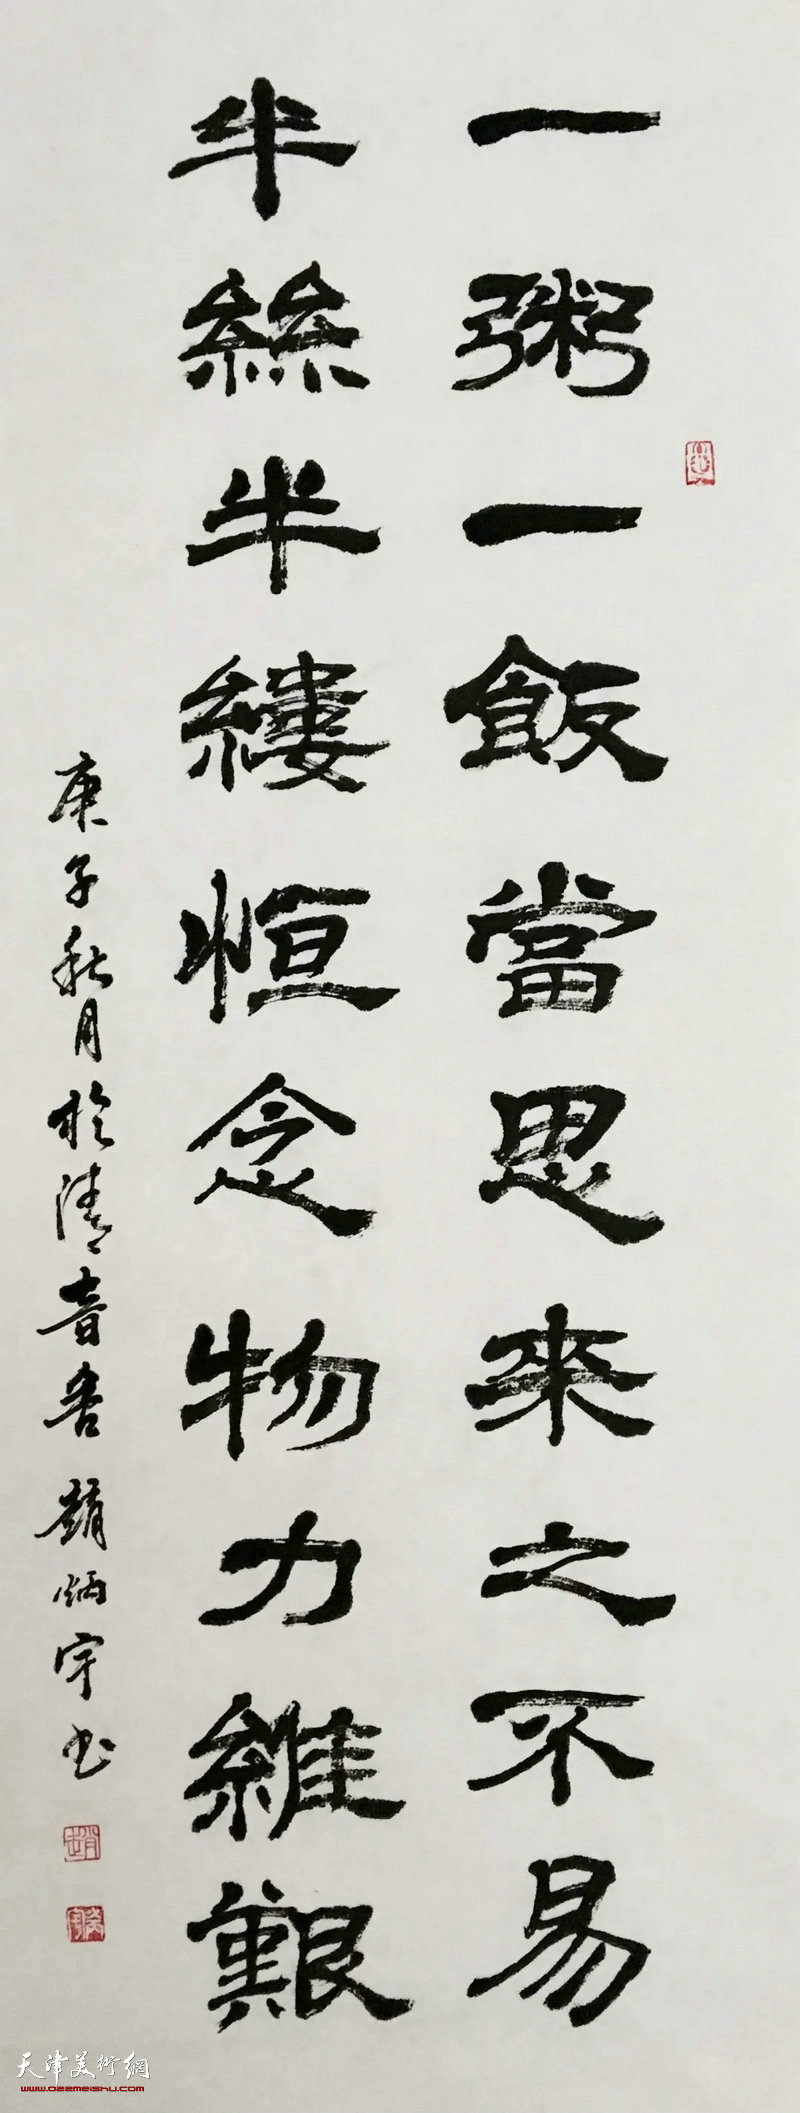 一粥一飯當思來之不易
半絲半縷恒念物力維艱
庚子秋月於清音書趙炳宇书
天津美術網
www.022meishu.com